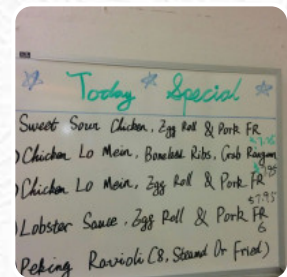 Today Special
Sweet Sour Chicken, Egg Roll & Pork FR
$7.75
) Chicken Lo Mein, Boneless Ribs, Crab Rangoon
) Chicken Lo Mein, Egg Roll & Pork FR
$7.95
) Lobster Sauce, Egg Roll & Pork FR
6
Peking Ravioli (8, Steamd Or Fried)